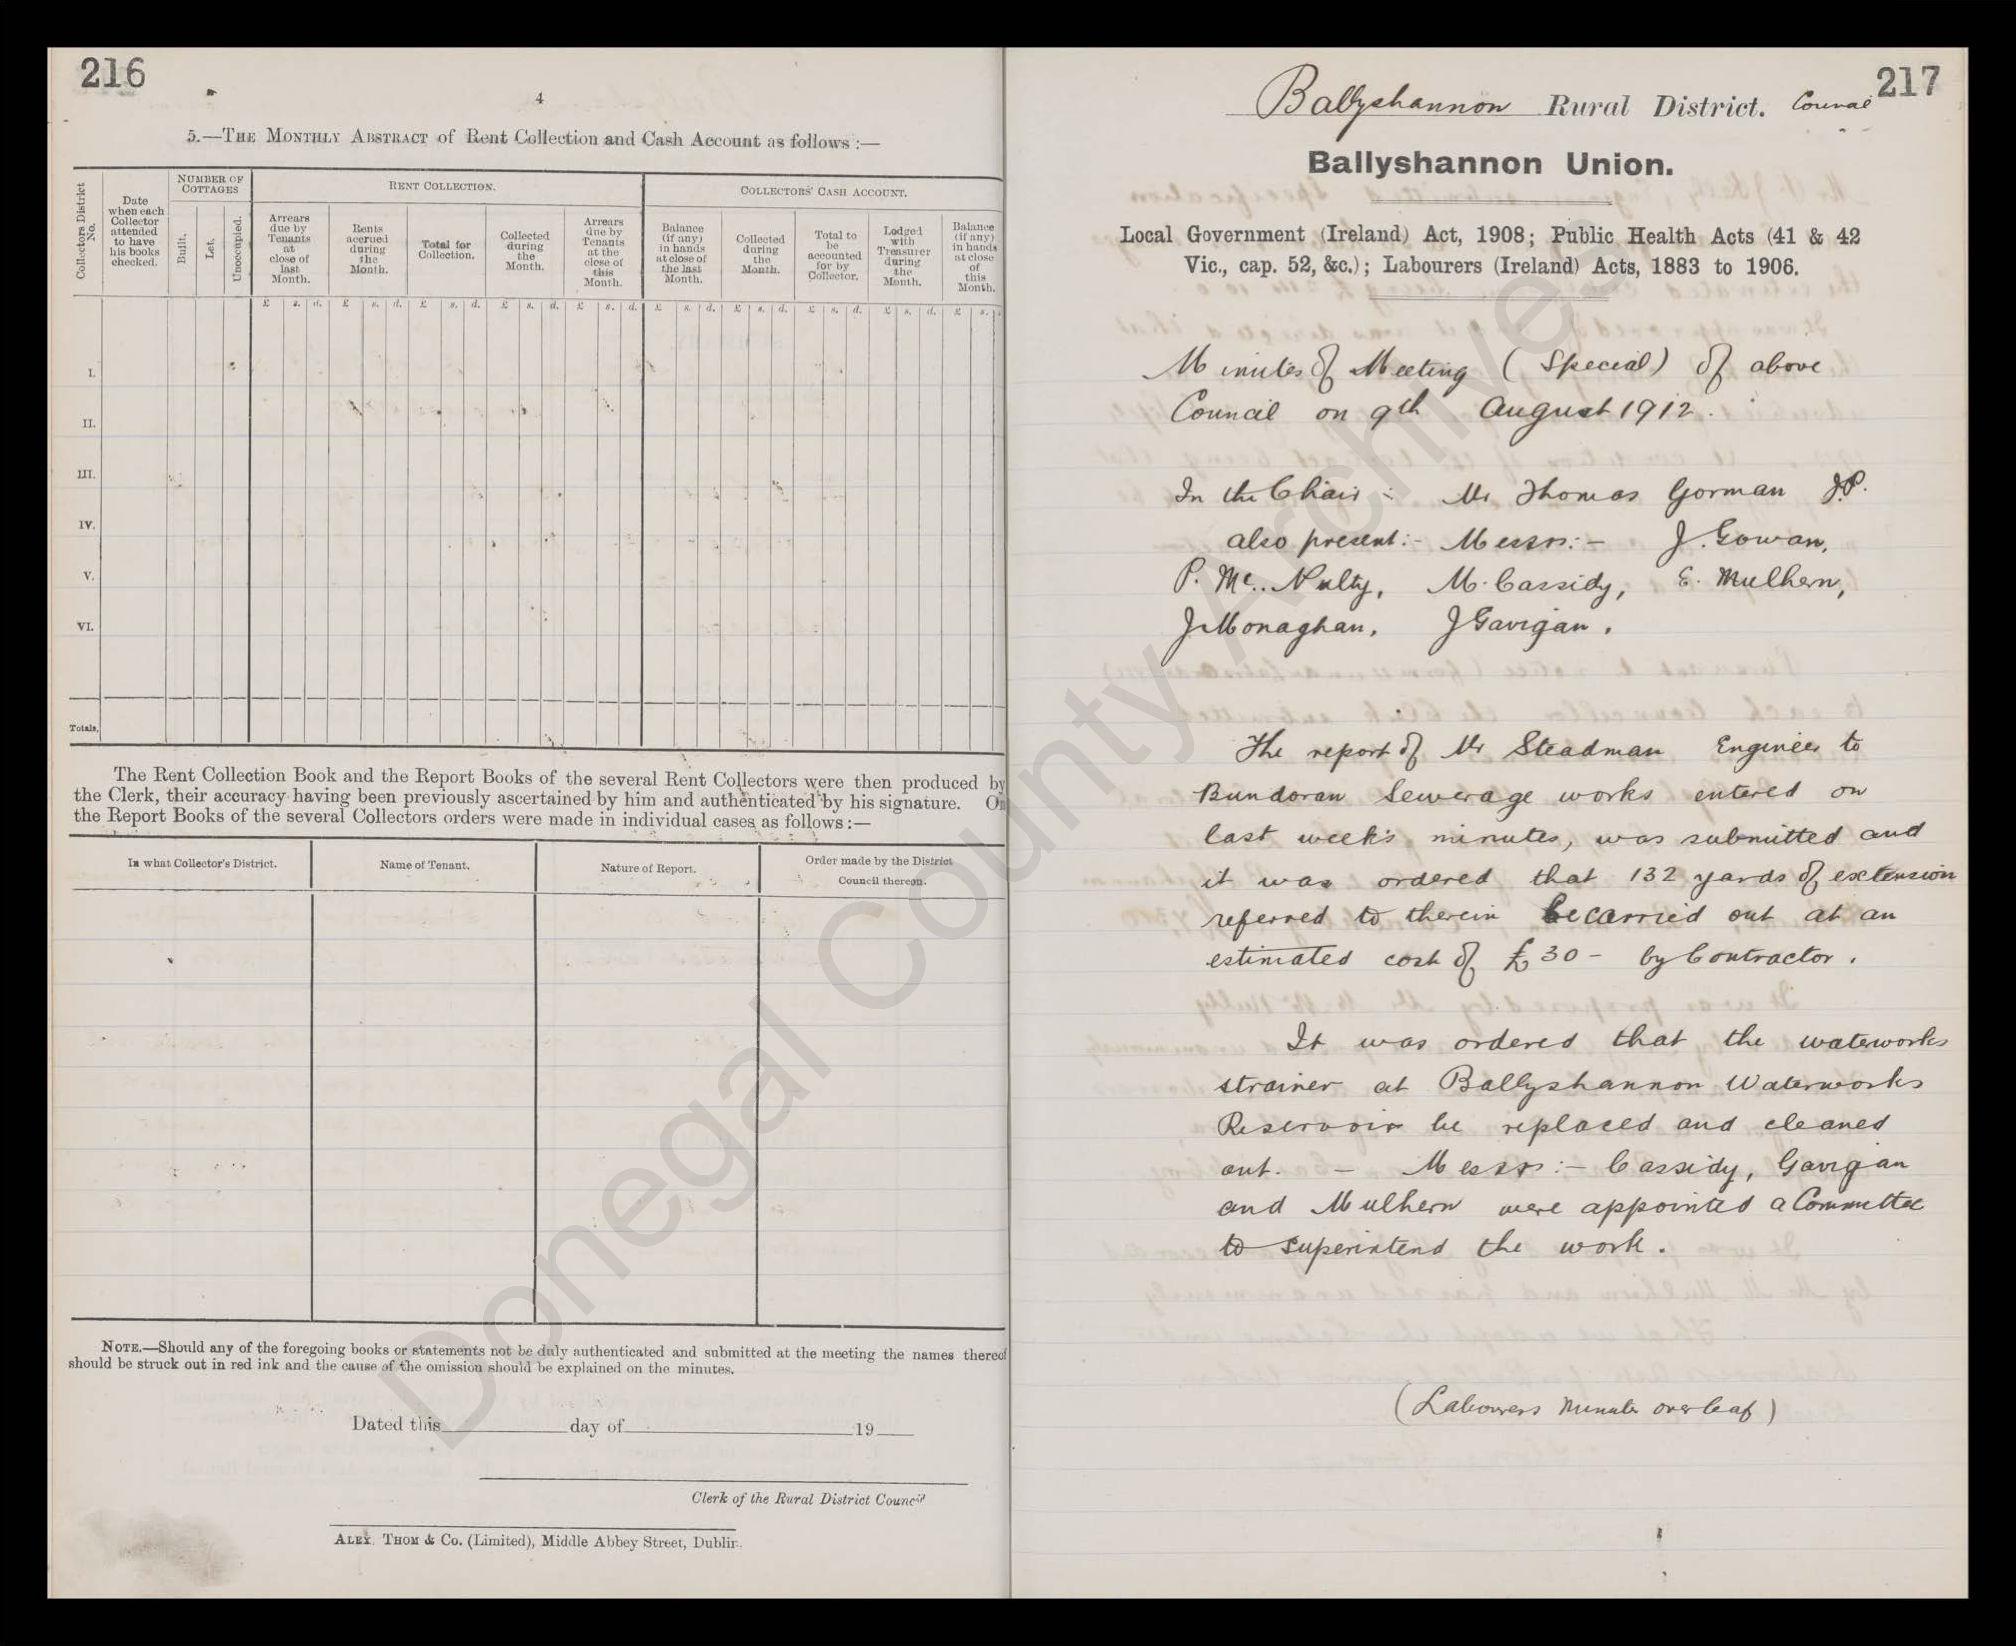 216
4
5.—THE MONTHLY ABSTRACT of Rent Collection and Cash Account as follows :—
Collectors District No.
Date when each Collector attended to have his books checked.
NUMBER OF COTTAGES
Built.
Let.
Unoccupied.
RENT COLLECTION.
Arrears due by Tenants at close of last Month.
Rents accrued during the Month.
Total for Collection.
Collected during the Month.
Arrears due by Tenants at the close of this Month.
COLLECTORS' CASH ACCOUNT.
Balance (if any) in hands at close of the last Month.
Collected during the Month.
Total to be accounted for by Collector.
Lodged with Treasurer during the Month.
Balance (if any) in hands at close of this Month.
£ s. d. £ s. d. £ s. d. £ s. d. £ s. d. £ s. d. £ s. d. £ s. d. £ s. d. £ s.
I.
II.
III.
IV.
V.
VI.
Totals,
The Rent Collection Book and the Report Books of the several Rent Collectors were then produced by
the Clerk, their accuracy having been previously ascertained by him and authenticated by his signature. On
the Report Books of the several Collectors orders were made in individual cases as follows :—
In what Collector's District.
Name of Tenant.
Nature of Report.
Order made by the District Council thereon.
NOTE.—Should any of the foregoing books or statements not be duly authenticated and submitted at the meeting the names thereof
should be struck out in red ink and the cause of the omission should be explained on the minutes.
Dated this day of 19
Clerk of the Rural District Council
ALEX. THOM & Co. (Limited), Middle Abbey Street, Dublin.
217
Ballyshannon Rural District. Council
Ballyshannon Union.
Local Government (Ireland) Act, 1908; Public Health Acts (41 & 42
Vic., cap. 52, &c.); Labourers (Ireland) Acts, 1883 to 1906.
Minutes of Meeting (Special) of above
Council on 9th August 1912.
In the Chair :- Mr Thomas Gorman J.P.
also present:- Messrs:- J. Gowan,
P. Mc..Nulty, M. Cassidy, E. Mulhern,
J Monaghan, J Gavigan.
The report of Mr Steadman Engineer to
Bundoran Sewerage works entered on
last week's minutes, was submitted and
it was ordered that 132 yards of extension
referred to therein be carried out at an
estimated cost of £30 - by Contractor.
It was ordered that the waterworks
strainer at Ballyshannon Waterworks
Reservoir be replaced and cleaned
out. - Messrs:- Cassidy, Gavigan
and Mulhern were appointed a Committee
to superintend the work.
(Labourers Minutes overleaf)
Donegal County Archives